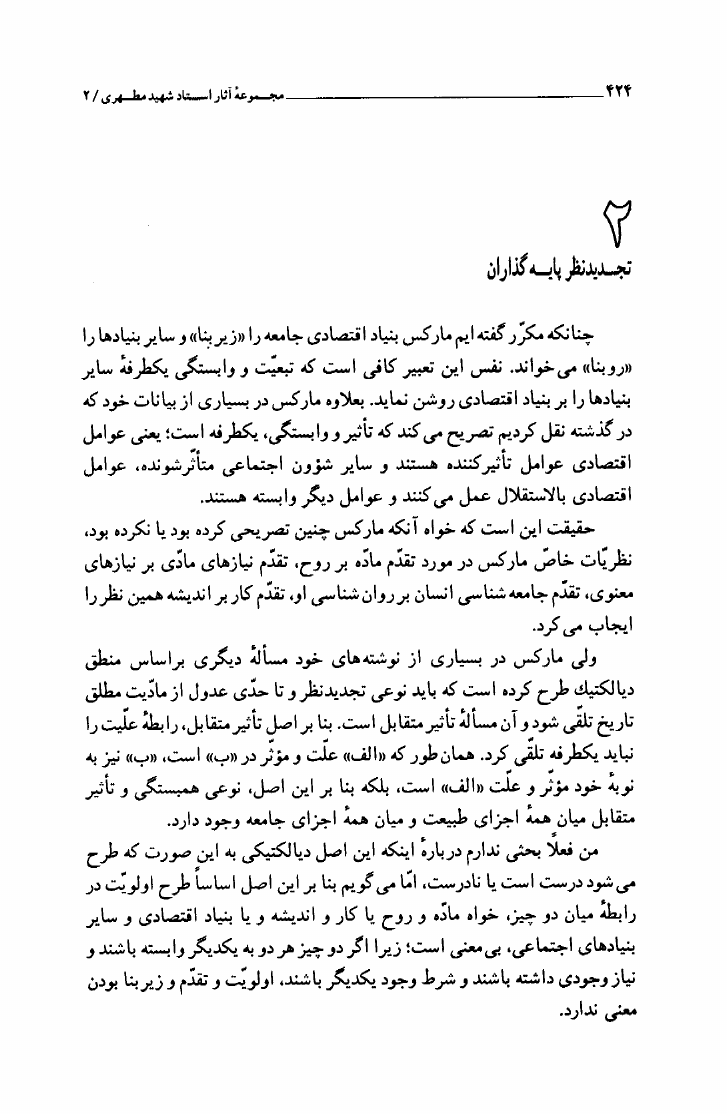 ۴۲۴ مجموعهٔ آثار استاد شهید مطهری / ۲
۲
تجدیدنظر پایه‌گذاران
چنانکه مکرّر گفته‌ایم مارکس بنیاد اقتصادی جامعه را «زیربنا» و سایر بنیادها را
«روبنا» می‌خواند. نفس این تعبیر کافی است که تبعیّت و وابستگی یکطرفهٔ سایر
بنیادها را بر بنیاد اقتصادی روشن نماید. بعلاوه مارکس در بسیاری از بیانات خود که
در گذشته نقل کردیم تصریح می‌کند که تأثیر و وابستگی، یکطرفه است؛ یعنی عوامل
اقتصادی عوامل تأثیرکننده هستند و سایر شؤون اجتماعی متأثّرشونده، عوامل
اقتصادی بالاستقلال عمل می‌کنند و عوامل دیگر وابسته هستند.
حقیقت این است که خواه آنکه مارکس چنین تصریحی کرده بود یا نکرده بود،
نظریّات خاصّ مارکس در مورد تقدّم مادّه بر روح، تقدّم نیازهای مادّی بر نیازهای
معنوی، تقدّم جامعه‌شناسی انسان بر روان‌شناسی او، تقدّم کار بر اندیشه همین نظر را
ایجاب می‌کرد.
ولی مارکس در بسیاری از نوشته‌های خود مسألهٔ دیگری براساس منطق
دیالکتیك طرح کرده است که باید نوعی تجدیدنظر و تا حدّی عدول از مادّیت مطلق
تاریخ تلقّی شود و آن مسألهٔ تأثیر متقابل است. بنا بر اصل تأثیر متقابل، رابطهٔ علّیت را
نباید یکطرفه تلقّی کرد. همان‌طور که «الف» علّت و مؤثّر در «ب» است، «ب» نیز به
نوبهٔ خود مؤثّر و علّت «الف» است، بلکه بنا بر این اصل، نوعی همبستگی و تأثیر
متقابل میان همهٔ اجزای طبیعت و میان همهٔ اجزای جامعه وجود دارد.
من فعلاً بحثی ندارم دربارهٔ اینکه این اصل دیالکتیکی به این صورت که طرح
می‌شود درست است یا نادرست، امّا می‌گویم بنا بر این اصل اساساً طرح اولویّت در
رابطهٔ میان دو چیز، خواه مادّه و روح یا کار و اندیشه و یا بنیاد اقتصادی و سایر
بنیادهای اجتماعی، بی‌معنی است؛ زیرا اگر دو چیز هر دو به یکدیگر وابسته باشند و
نیاز وجودی داشته باشند و شرط وجود یکدیگر باشند، اولویّت و تقدّم و زیربنا بودن
معنی ندارد.